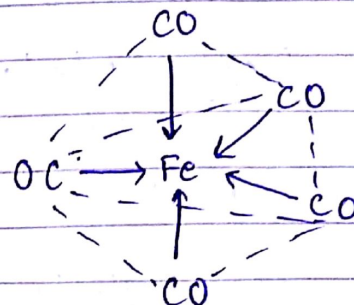 CO
CO
OC Fe
CO
CO